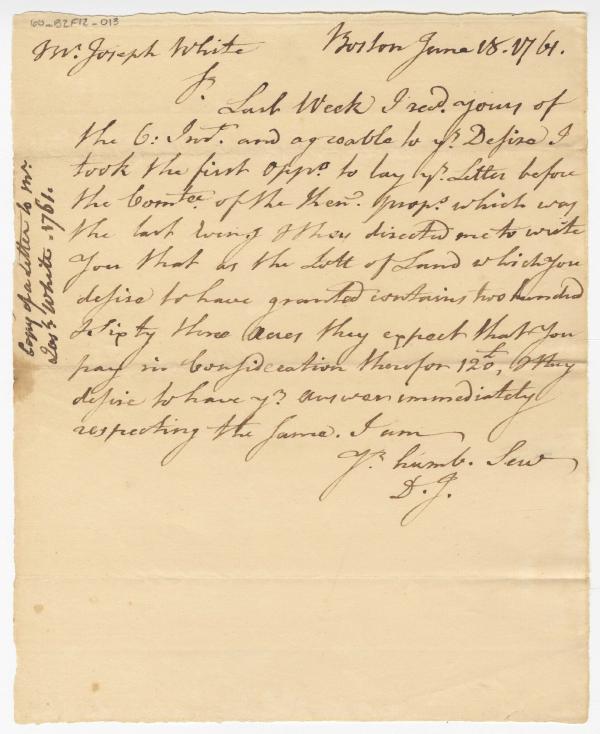 60-B2F12-013
Mr. Joseph White Boston June 18. 1761.
Sr.
Last Week I recd. yours of
the 6: Inst. and agreable to yr. Desire I
took the first oppo. to lay yr. Letter before
the Comtee. of the Ken. Props. which was
the last Eveng & they directed me to write
you that as the Lott of Land which you
desire to have granted contains two hundred
& Sixty three acres they expect that you
pay in Consideration therefor 120, & they
desire to have yr. answer immediately
respecting the same. I am
Yr. humb. Serv
D. J.
Copy of a Letter to Mr.
Josh. White. 1761.